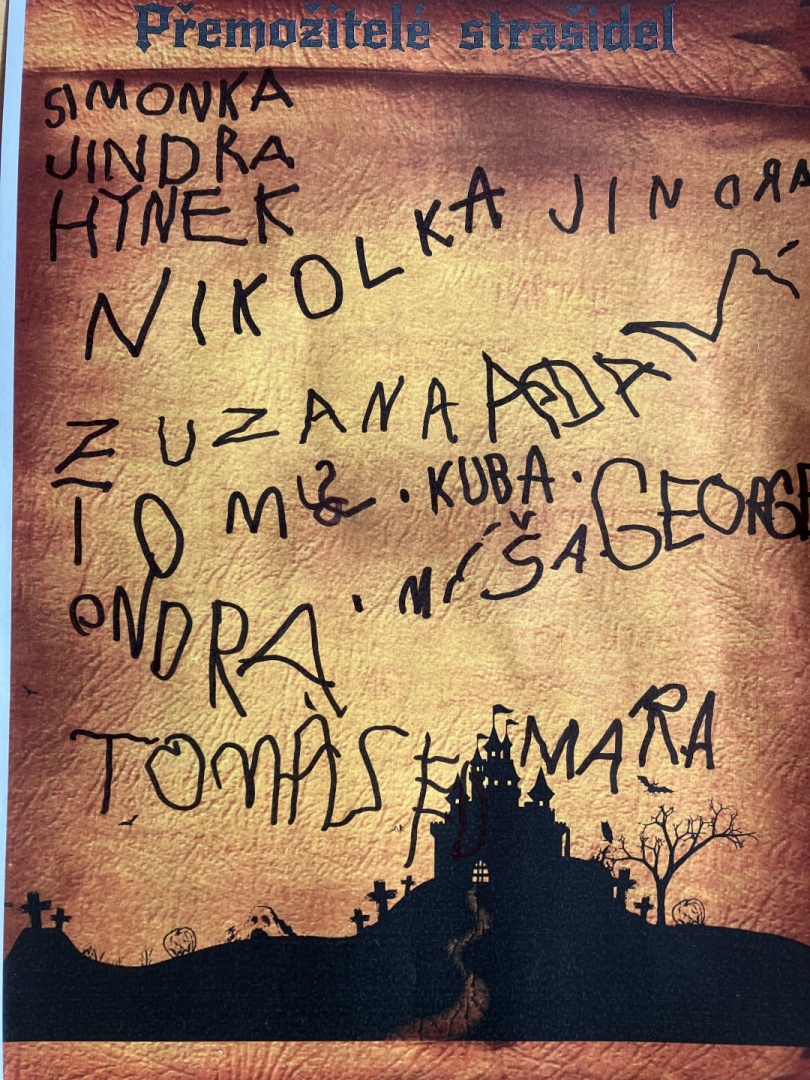 Přemožitelé strašidel
SIMONKA
JINDRA
HYNEK
NIKOLKA JINDRA
ZUZANA ADA
TOM · KUBA · GEORG
ONDRA · MÍŠA
TOMÁS ED MARA